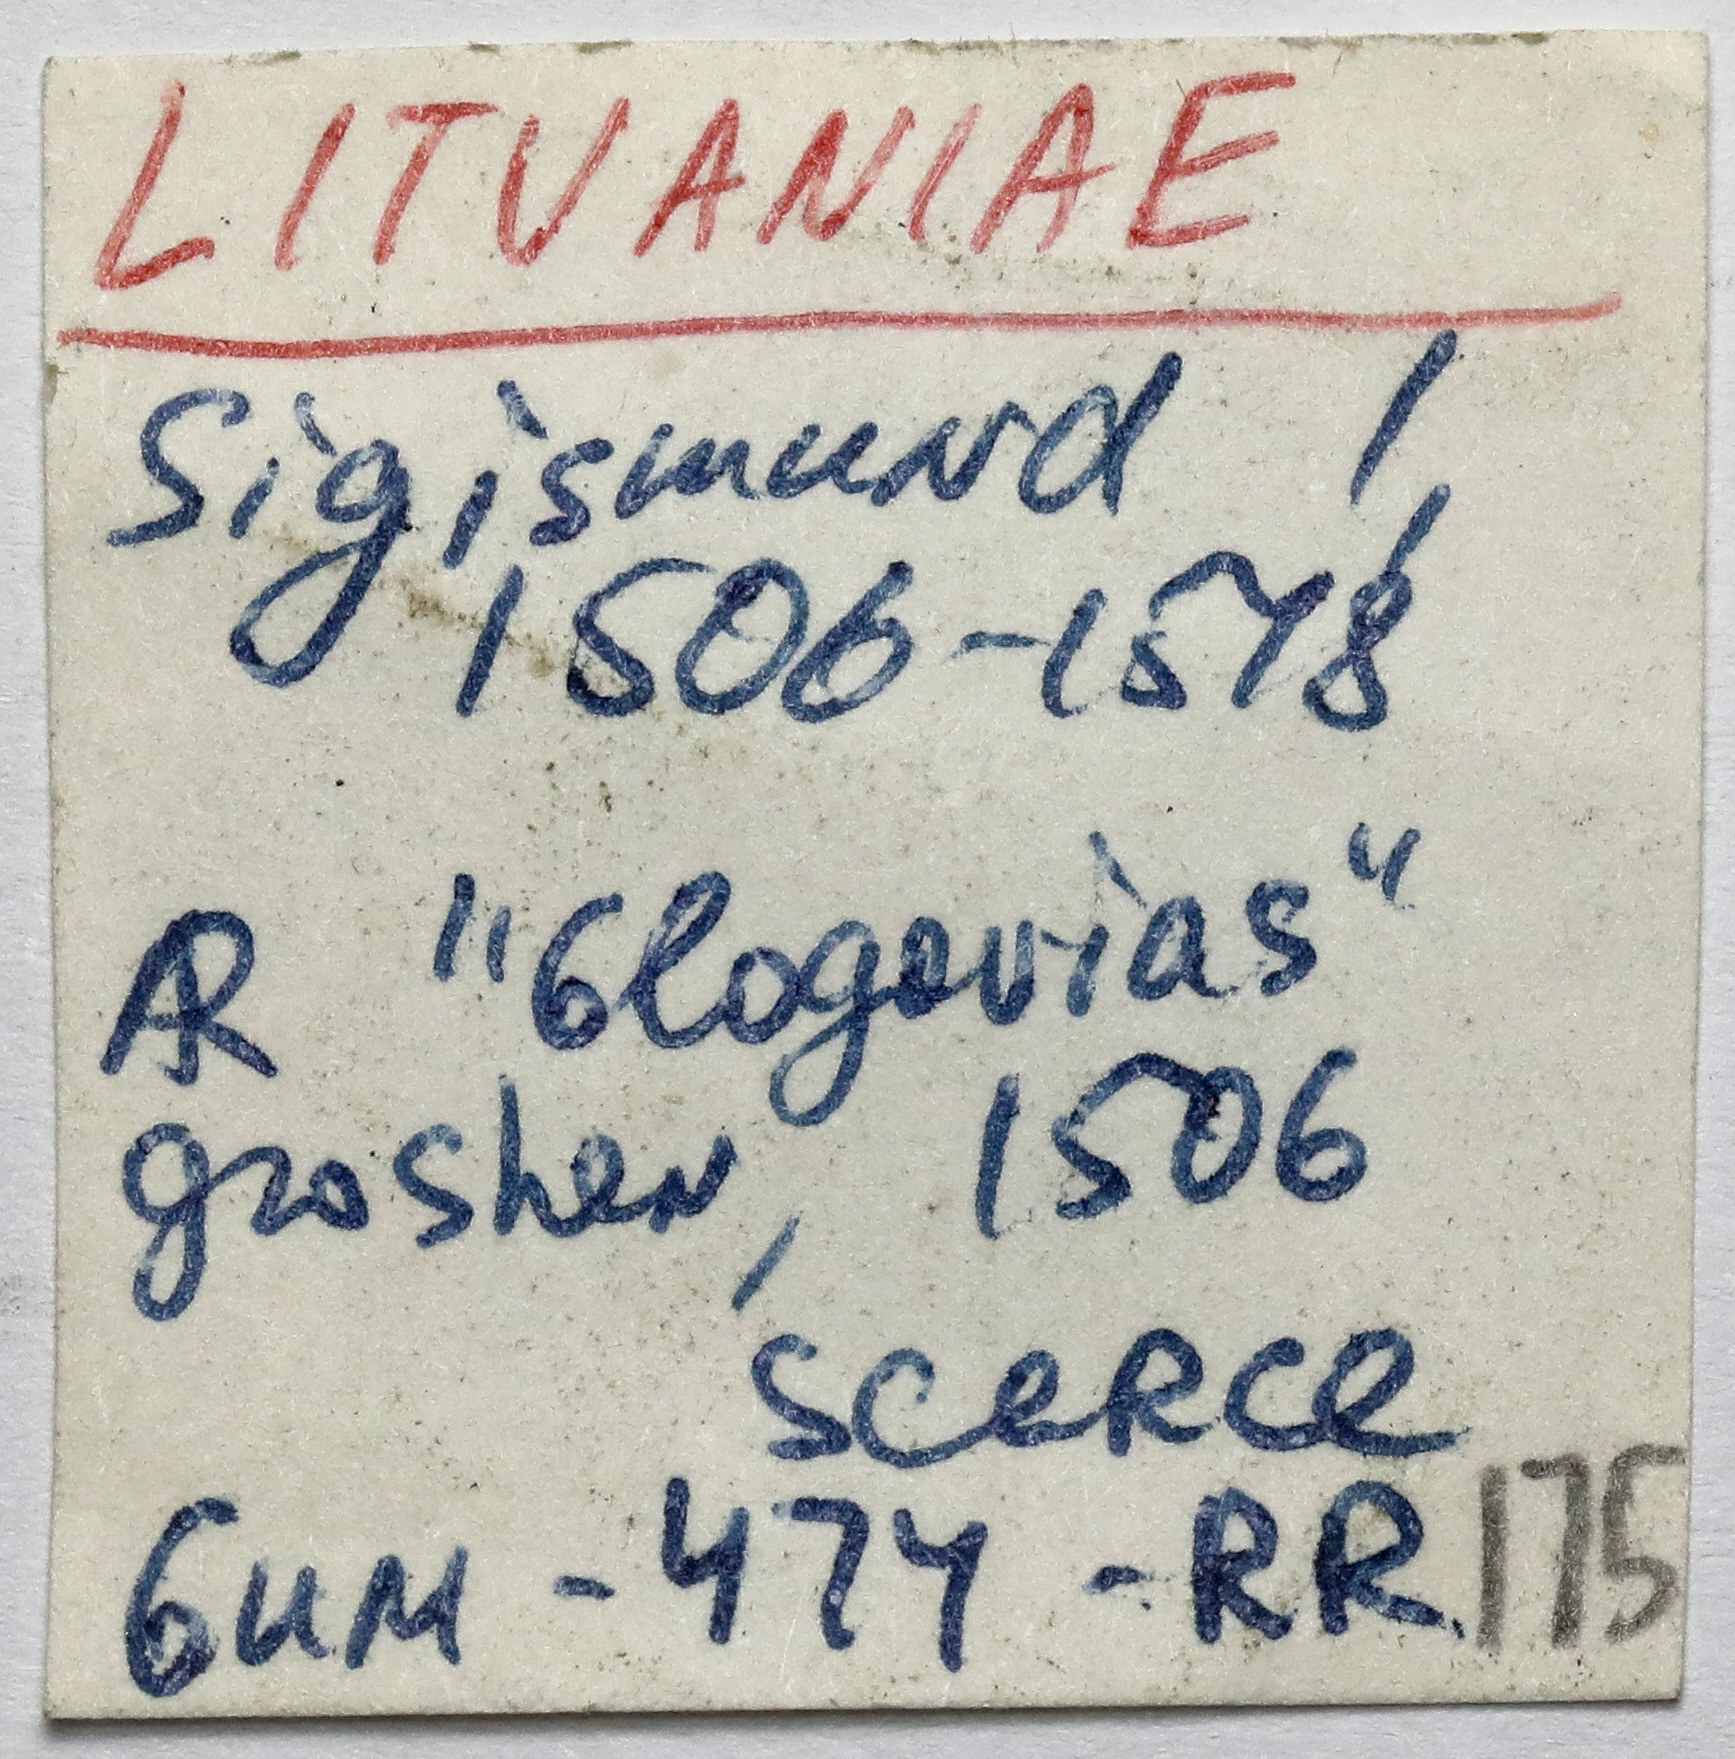 LITVANIAE
Sigismund I,
1506-1548
AR "Glogovias"
groshen, 1506
scerce
Gum - 474 - RR 175